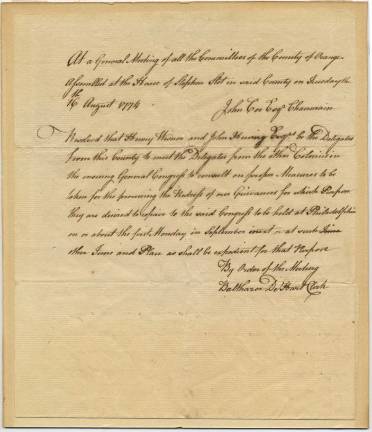 At a General Meeting of all the Committees of the County of Orange
Assembled at the House of Stephen Slot in said County on Tuesday the
th
16 August 1774
John Coe Esqr Chairman
Resolved that Henry Wisner and John Haring Esqrs be the Deligates
from this County to meet the Deligates from the Other Colonies in
the ensuing General Congress to consult on proper Measures to be
taken for the procuring the Redress of our Grievances for which Purpose
they are desired to repair to the said Congress to be held at Philadelphia
on or about the first Monday in September or at such
other Time and Place as shall be expedient for that Purpose
By Order of the Meeting
Balthazar De Hart Clerk